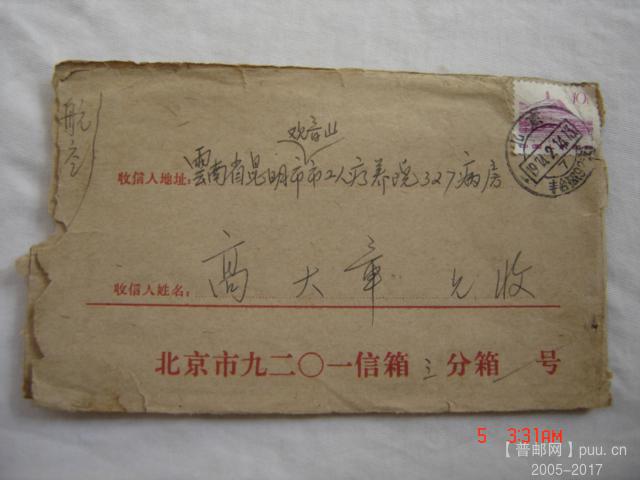 航空
观音山
收信人地址：雲南省昆明市市工人疗养院327病房
收信人姓名：高大章 兄收
北京市九二〇一信箱三分箱一号
10
北京
5 3:31AM
【普邮网】puu.cn
2005-2017